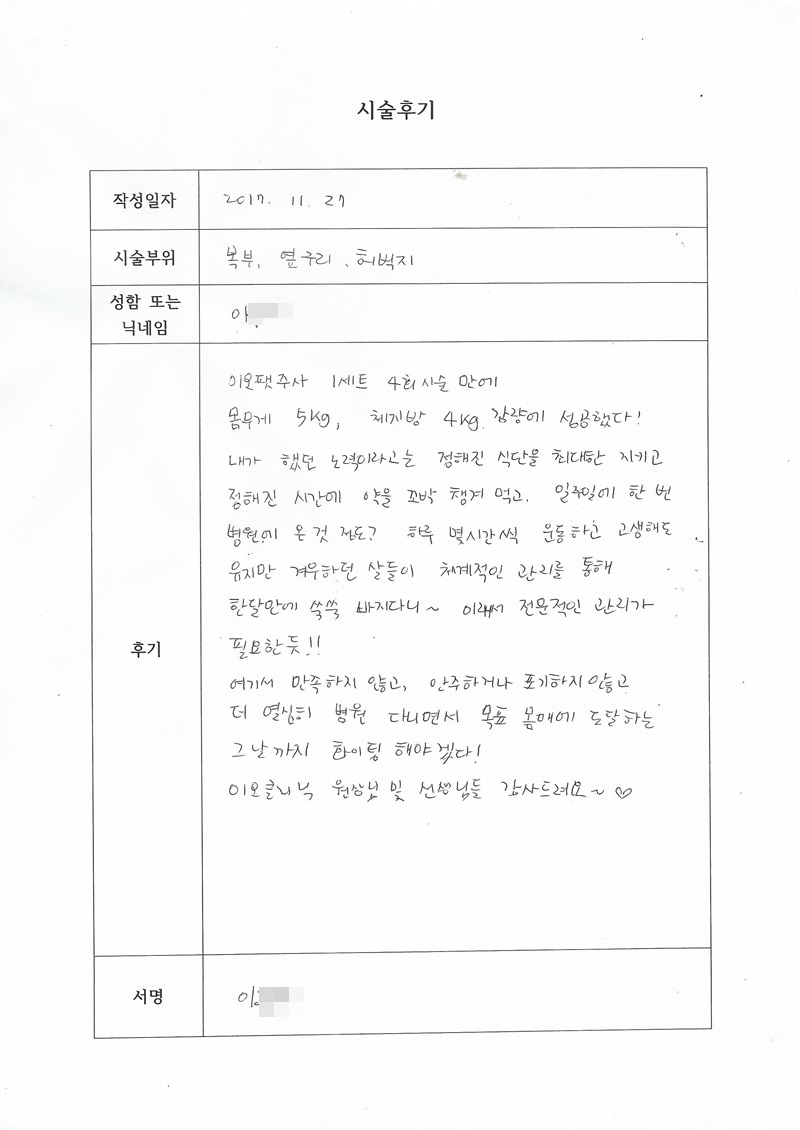 시술후기
작성일자
2017. 11. 27
시술부위
복부, 옆구리, 허벅지
성함 또는
닉네임
아
후기
이오팻주사 1세트 4회시술 만에
몸무게 5kg, 체지방 4kg 감량에 성공했다!
내가 했던 노력이라고는 정해진 식단을 최대한 지키고
정해진 시간에 약을 꼬박 챙겨 먹고, 일주일에 한 번
병원에 온 것 정도? 하루 몇시간씩 운동하고 고생해도
유지만 겨우하던 살들이 체계적인 관리를 통해
한달만에 쑥쑥 빠지다니~ 이래서 전문적인 관리가
필요한듯!!
여기서 만족하지 않고, 안주하거나 포기하지 않고
더 열심히 병원 다니면서 목표 몸매에 도달하는
그날까지 화이팅 해야겠다!
이오클리닉 원장님 및 선생님들 감사드려요~ ♡
서명
이